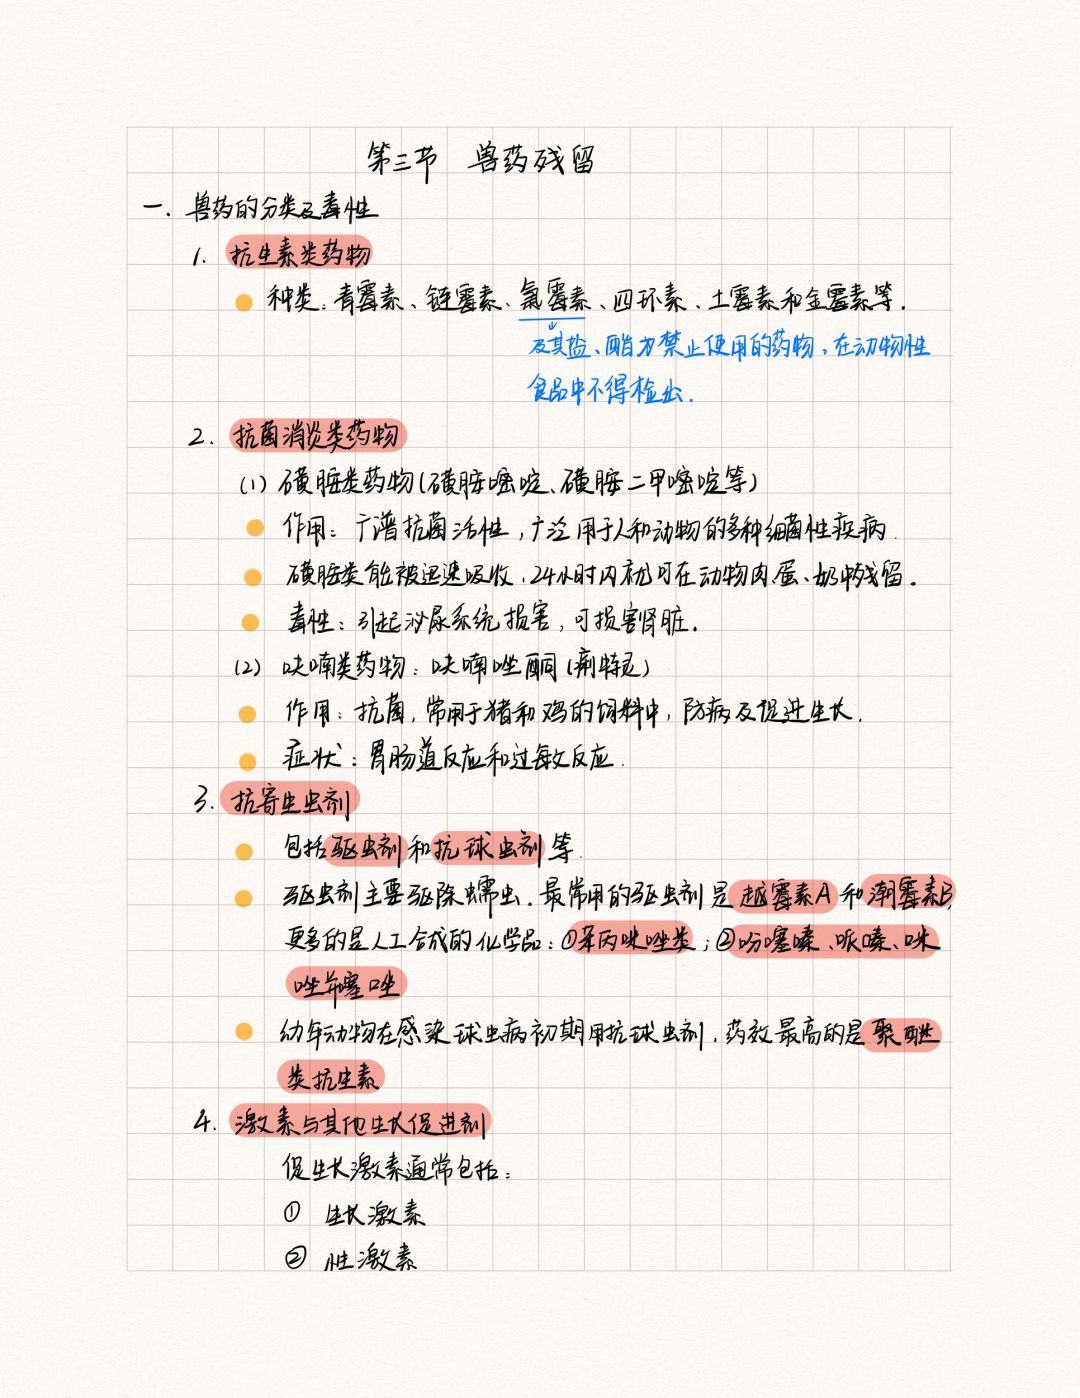 第三节 兽药残留
一. 兽药的分类及毒性
1. 抗生素类药物
种类: 青霉素、链霉素、氯霉素、四环素、土霉素和金霉素等.
及其盐、酯为禁止使用的药物,在动物性
食品中不得检出.
2. 抗菌消炎类药物
(1) 磺胺类药物(磺胺嘧啶、磺胺二甲嘧啶等)
作用: 广谱抗菌活性,广泛用于人和动物的多种细菌性疾病.
磺胺类能被迅速吸收,24小时内就可在动物肉蛋、奶中残留.
毒性: 引起泌尿系统损害,可损害肾脏.
(2) 呋喃类药物: 呋喃唑酮(痢特灵)
作用: 抗菌,常用于猪和鸡的饲料中,防病及促进生长.
症状: 胃肠道反应和过敏反应.
3. 抗寄生虫剂
包括驱虫剂和抗球虫剂等.
驱虫剂主要驱除蠕虫.最常用的驱虫剂是越霉素A和潮霉素B,
更多的是人工合成的化学品: ①苯丙咪唑类; ②吩噻嗪、哌嗪、咪
唑并噻唑
幼年动物在感染球虫病初期用抗球虫剂,药效最高的是聚醚
类抗生素
4. 激素与其他生长促进剂
促生长激素通常包括:
① 生长激素
② 性激素